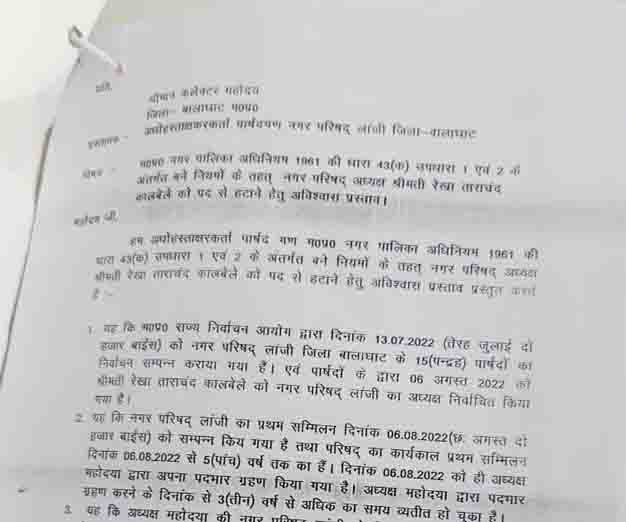 प्रति,
श्रीमान कलेक्टर महोदय
जिला- बालाघाट म०प्र०
प्रस्तावक - अधोहस्ताक्षरकर्ता पार्षदगण नगर परिषद् लांजी जिला-बालाघाट
विषय - म०प्र० नगर पालिका अधिनियम 1961 की धारा 43(क) उपधारा 1 एवं 2 के
अंतर्गत बने नियमों के तहत् नगर परिषद् अध्यक्ष श्रीमती रेखा ताराचंद
कालबेले को पद से हटाने हेतु अविश्वास प्रस्ताव।
महोदय जी,
हम अधोहस्ताक्षरकर्ता पार्षद गण म०प्र० नगर पालिका अधिनियम 1961 की
धारा 43(क) उपधारा 1 एवं 2 के अंतर्गत बने नियमों के तहत् नगर परिषद् अध्यक्ष
श्रीमती रेखा ताराचंद कालबेले को पद से हटाने हेतु अविश्वास प्रस्ताव प्रस्तुत करते
है :-
1. यह कि म०प्र० राज्य निर्वाचन आयोग द्वारा दिनांक 13.07.2022 (तेरह जुलाई दो
हजार बाईस) को नगर परिषद् लांजी जिला बालाघाट के 15(पन्द्रह) पार्षदों का
निर्वाचन सम्पन्न कराया गया है। एवं पार्षदों के द्वारा 06 अगस्त 2022 को
श्रीमती रेखा ताराचंद कालबेले को नगर परिषद् लांजी का अध्यक्ष निर्वाचित किया
गया है।
2. यह कि नगर परिषद् लांजी का प्रथम सम्मिलन दिनांक 06.08.2022(छः अगस्त दो
हजार बाईस) को सम्पन्न किय गया है तथा परिषद् का कार्यकाल प्रथम सम्मिलन
दिनांक 06.08.2022 से 5(पांच) वर्ष तक का हैं। दिनांक 06.08.2022 को ही अध्यक्ष
महोदया द्वारा अपना पदभार ग्रहण किया गया है। अध्यक्ष महोदया द्वारा पदभार
ग्रहण करने के दिनांक से 3(तीन) वर्ष से अधिक का समय व्यतीत हो चुका है।
3. यह कि अध्यक्ष महोदया की नगर परिषद